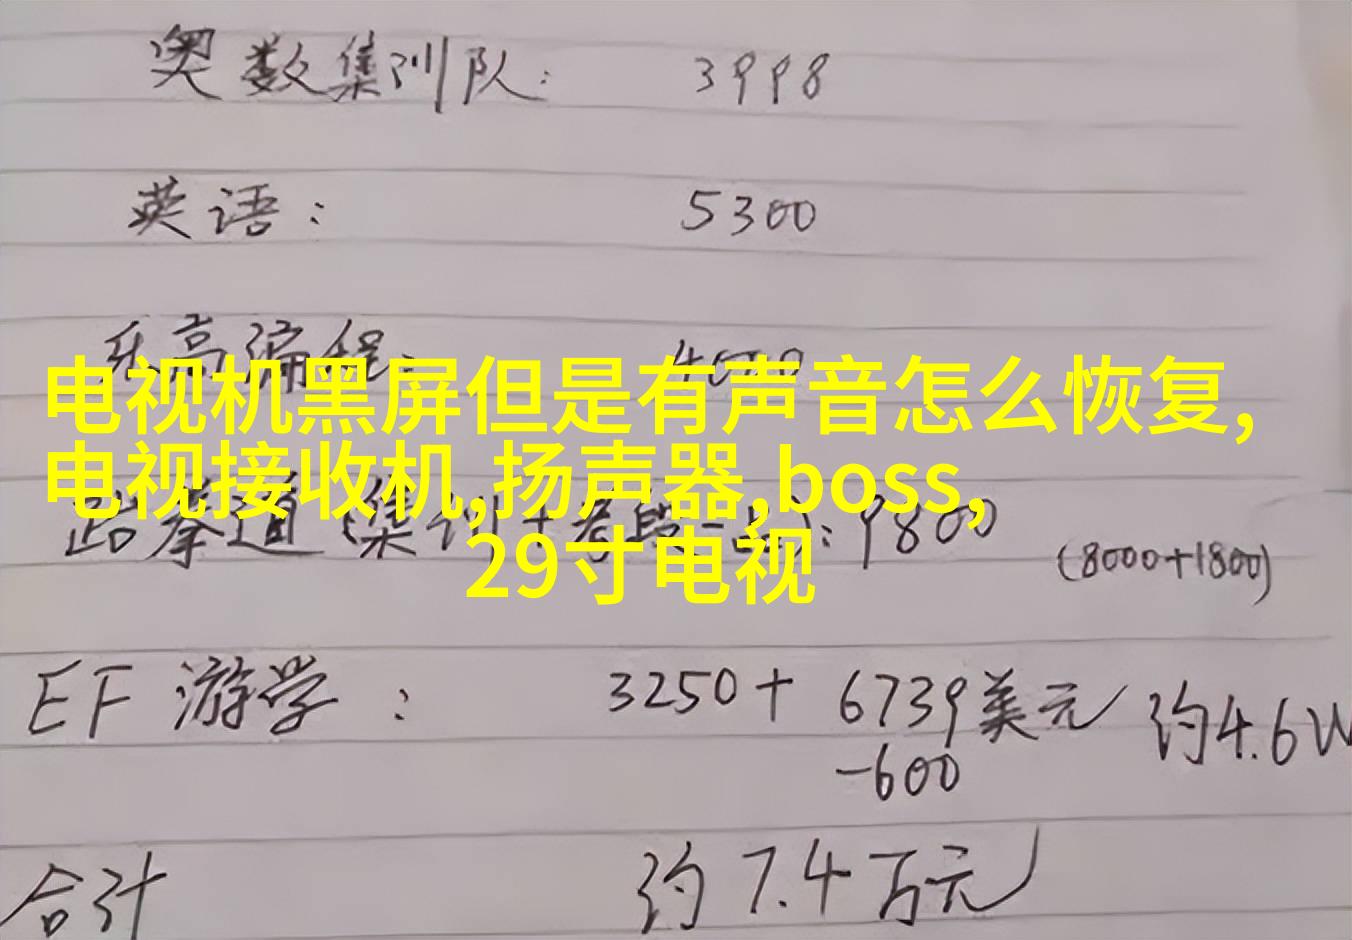 奥数集训队: 3998
英语: 5300
乐高编程: 4000
电视机黑屏但是有声音怎么恢复,
电视接收机,扬声器,boss,
跆拳道(集训+考段一段): 9800
(8000+1800)
29寸电视
EF 游学: 3250+ 6739美元 约4.6W
-600
合计 约7.4万元